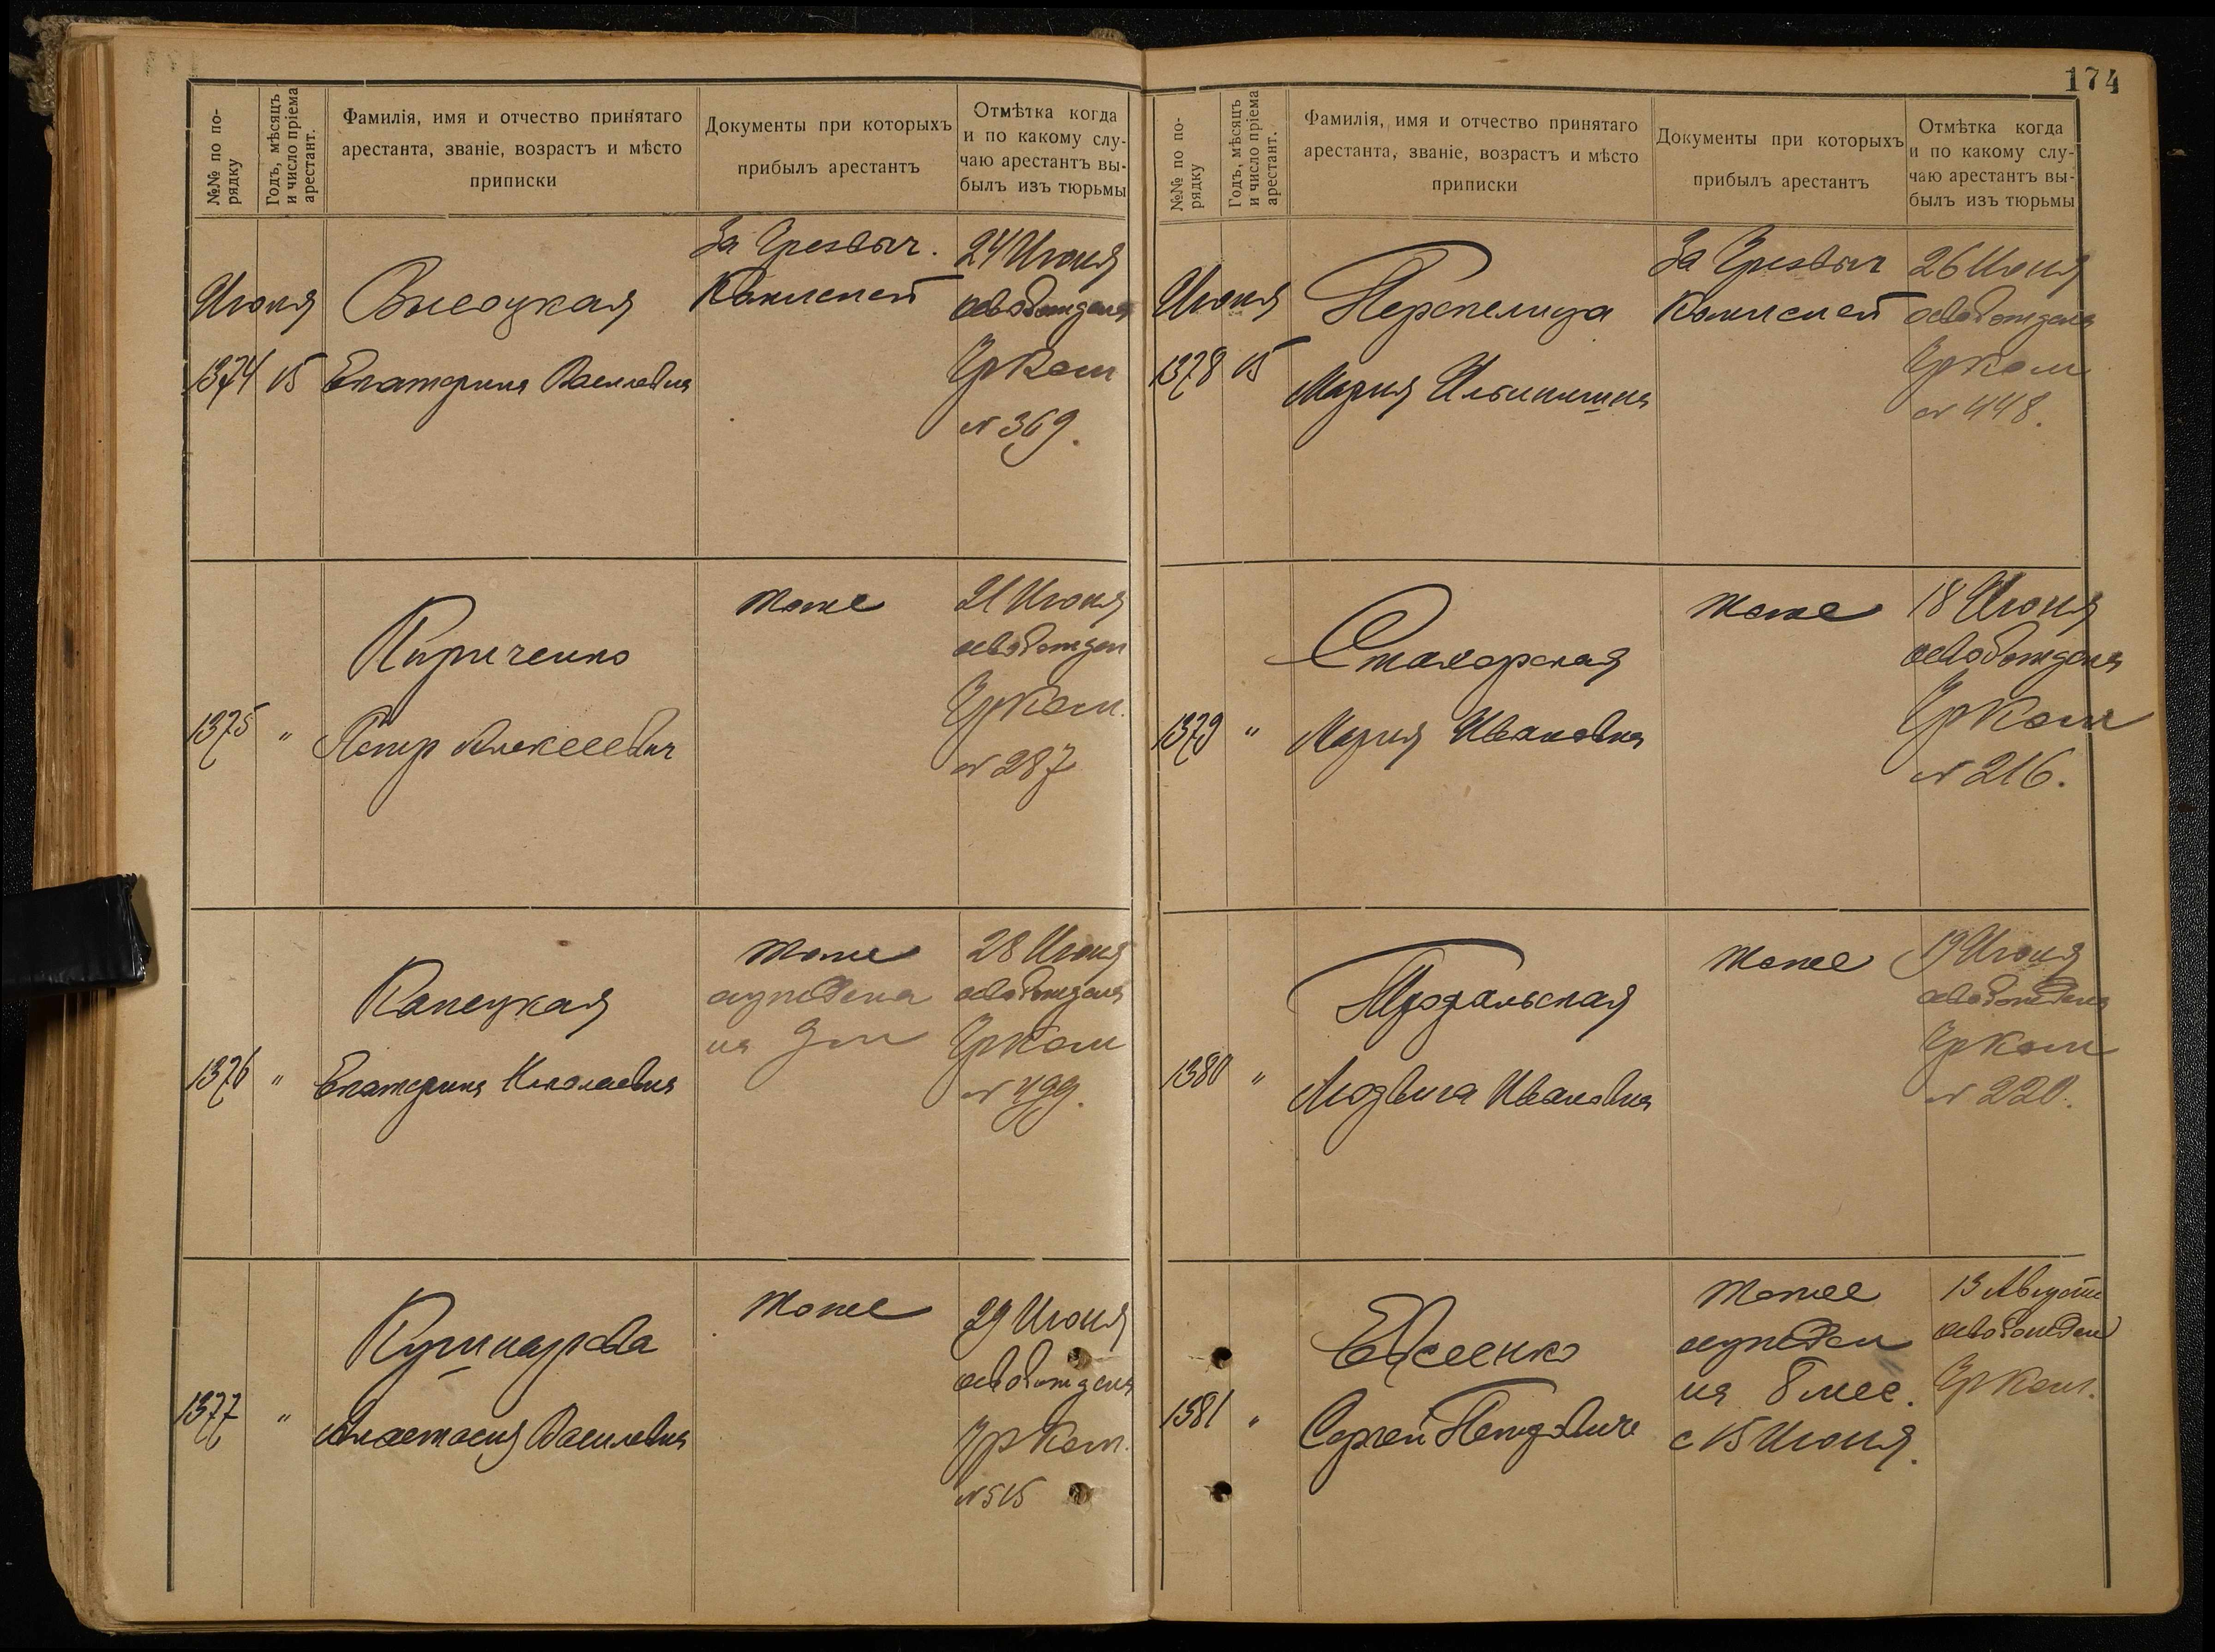 №№ по по-
рядку
Годъ, мѣсяцъ
и число пріема
арестант.
Фамилія, имя и отчество принятаго
арестанта, званіе, возрастъ и мѣсто
приписки
Документы при которыхъ
прибылъ арестантъ
Отмѣтка когда
и по какому слу-
чаю арестантъ вы-
былъ изъ тюрьмы
Июня
1374
15
Высоцкая
Екатерина Василевна
За Чрезвыч.
Комиссией
24 Июня
освобождена
ЧрКом
№ 369.
1375
"
Кириченко
Петр Алексеевич
тоже
21 Июня
освобожден
ЧрКом.
№ 287
1376
"
Капецкая
Екатерина Николаевна
тоже
осуждена
на
28 Июня
освобождена
ЧрКом
№ 499.
1377
"
Анастасия Василевна
тоже
29 Июня
освобождена
ЧрКом.
№ 515
174
№№ по по-
рядку
Годъ, мѣсяцъ
и число пріема
арестант.
Фамилія, имя и отчество принятаго
арестанта, званіе, возрастъ и мѣсто
приписки
Документы при которыхъ
прибылъ арестантъ
Отмѣтка когда
и по какому слу-
чаю арестантъ вы-
былъ изъ тюрьмы
Июня
1378
15
Перепелица
Мария Ильинишна
За Чрезвыч
Комиссией
26 Июня
освобождена
ЧрКом
№ 448.
1379
"
Мария Ивановна
тоже
18 Июня
освобождена
ЧрКом
№ 216.
1380
"
Людвига Ивановна
тоже
19 Июня
освобождена
ЧрКом
№ 220.
1381
"
Евсеенко
Сергей Петрович
тоже
осужден
на 8 мес.
с 15 Июня.
13 Августа
освобожден
ЧрКом.